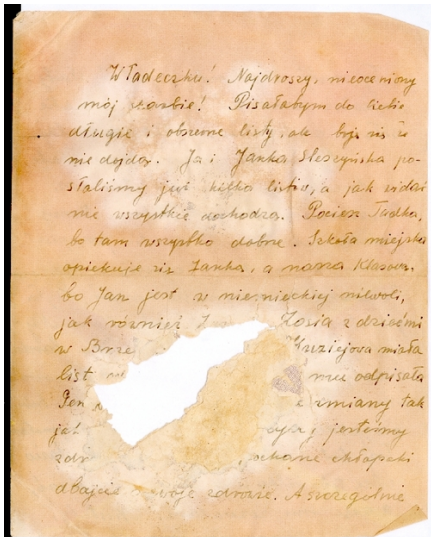 Władeczku! Najdroszy, nieoceniony
mój skarbie! Pisałabym do Ciebie
długie i obszerne listy, ale boję się że
nie dojdą. Ja i Janka Sleszyńska po-
słaliśmy już kilka listów, a jak widać
nie wszystkie dochodzą. Pociesz Tadka,
bo tam wszystko dobrze. Szkoła miejska
opiekuje się Janka, a nasza
bo Jan jest w niemieckiej niewoli,
jak również Zosia z dziećmi
w Brze miała
list mu odpisała
zmiany tak
jak jesteśmy
zdr chłopaki
dbajcie zdrowie. A szczególnie